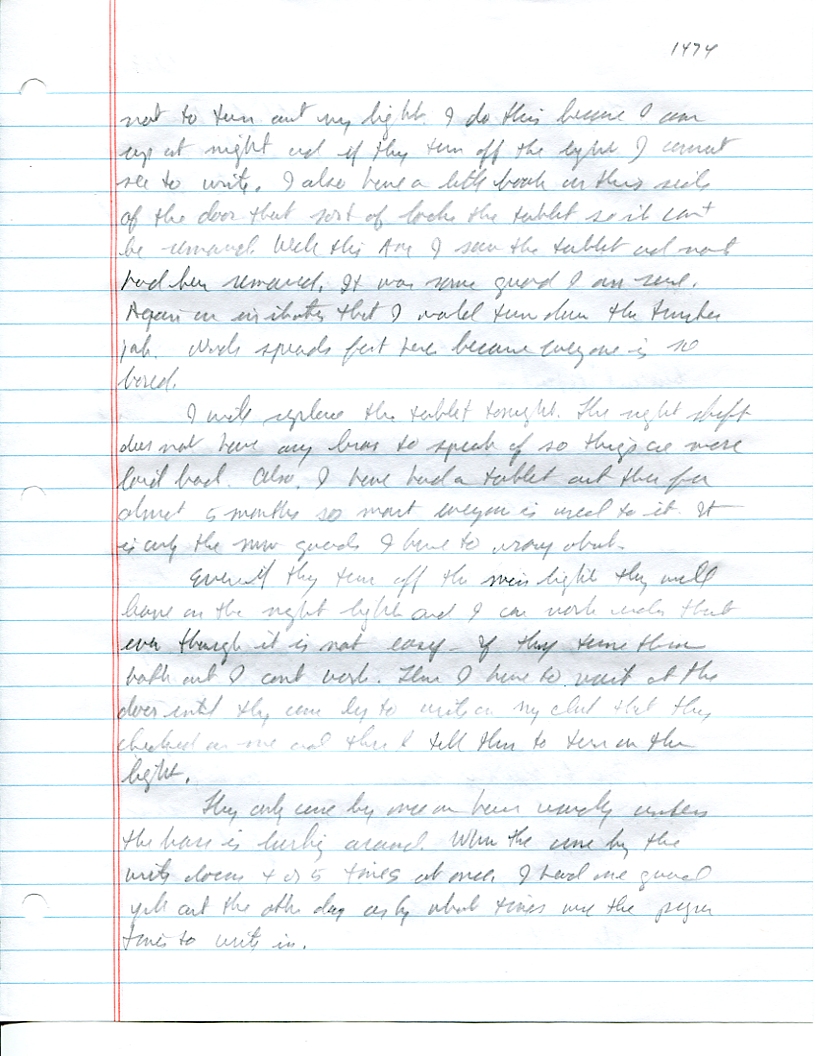 1474
not to turn out my light. I do this because I am
up at night and if they turn off the light I cannot
see to write. I also have a little book on this side
of the door that sort of locks the tablet so it can't
be removed. Well this AM I saw the tablet and
had been removed. It was some guard I am sure.
Again an that I would turn down the
job. Words spreads fast here because everyone is so
bored.
I will replace the tablet tonight. The night shift
does not have any boss to speak of so things are more
laid back. Also, I have had a tablet out there for
almost 5 months so most everyone is used to it. It
is only the new guards I have to worry about.
Even if they turn off the main light they will
leave on the night light and I can work under that
even though it is not easy. If they turn them
both out I can't work. Then I have to wait at the
door until they come by to write on my chart that they
checked on me and then I tell them to turn on the
light.
They only come by once an hour usually unless
the boss is lurking around. When the come by the
write down 4 or 5 times at once. I had one guard
yell out the other day what times are the proper
times to write in.